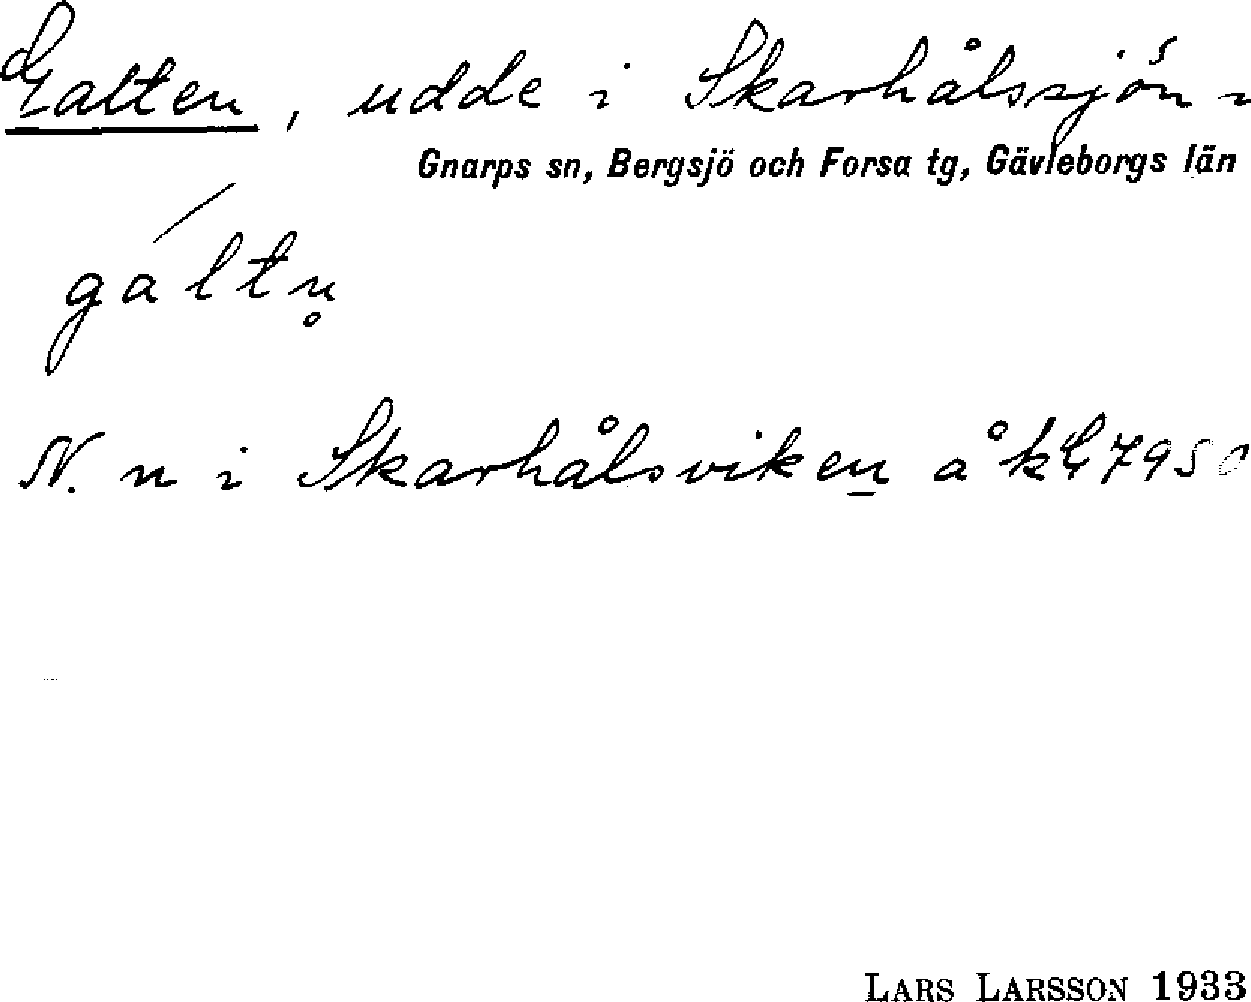 Galten, udde i Skarhålssjön
Gnarps sn, Bergsjö och Forsa tg, Gävleborgs län
gáltn̥
N. n i Skarhålsviken å
LARS LARSSON 1933